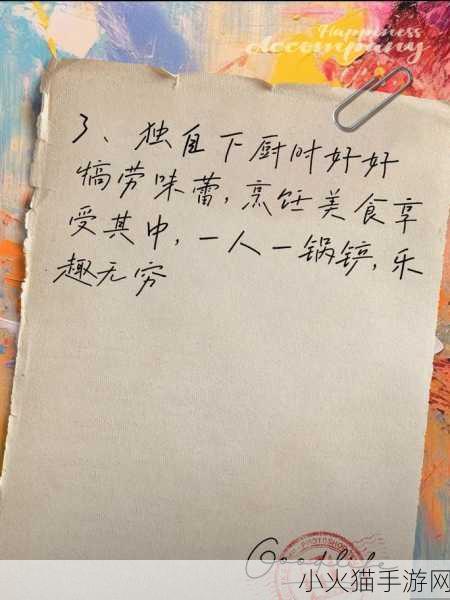 Happiness
accompany
3、独自下厨时好好
犒劳味蕾,烹饪美食享
受其中,一人一锅铲,乐
趣无穷
PHOTOSHOP
Good life
小火猫手游网